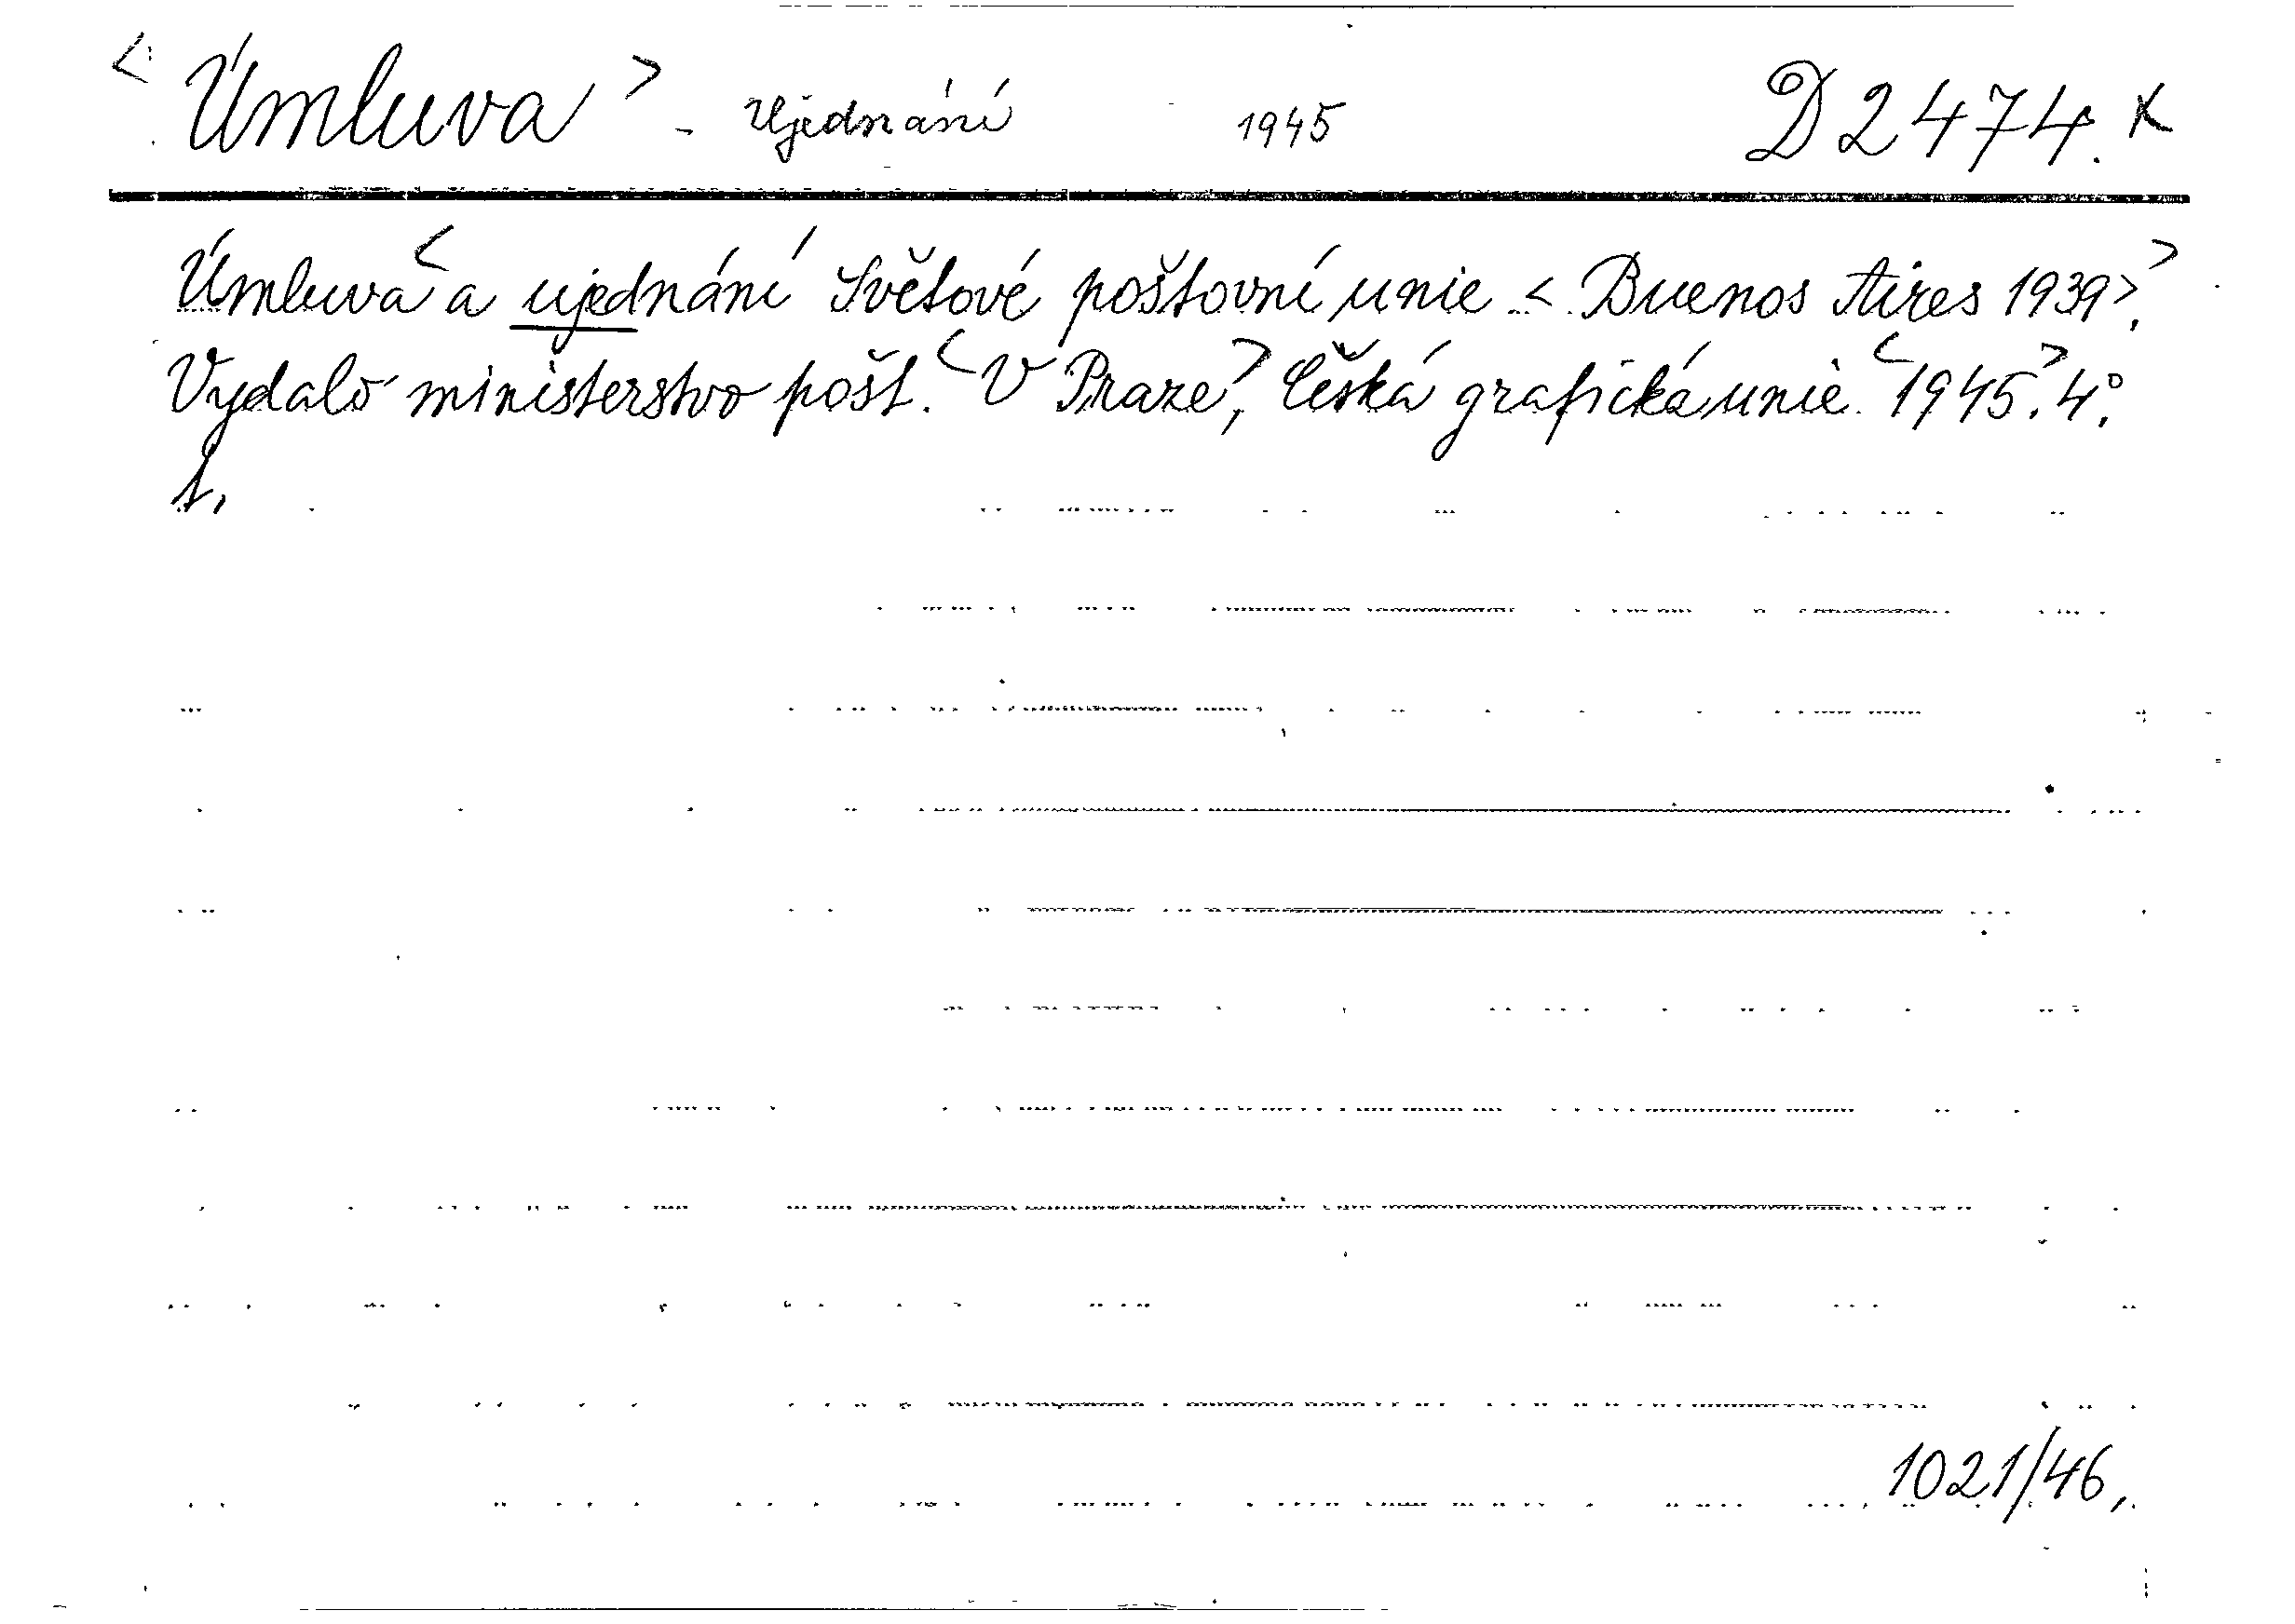 <Úmluva> - Ujednání 1945 D 2474. x
Úmluva < a ujednání Světové poštovní unie < Buenos Aires 1939>.>
Vydalo ministerstvo pošt. <V Praze>, Česká grafická unie. <1945>. 4°.
1021/46.